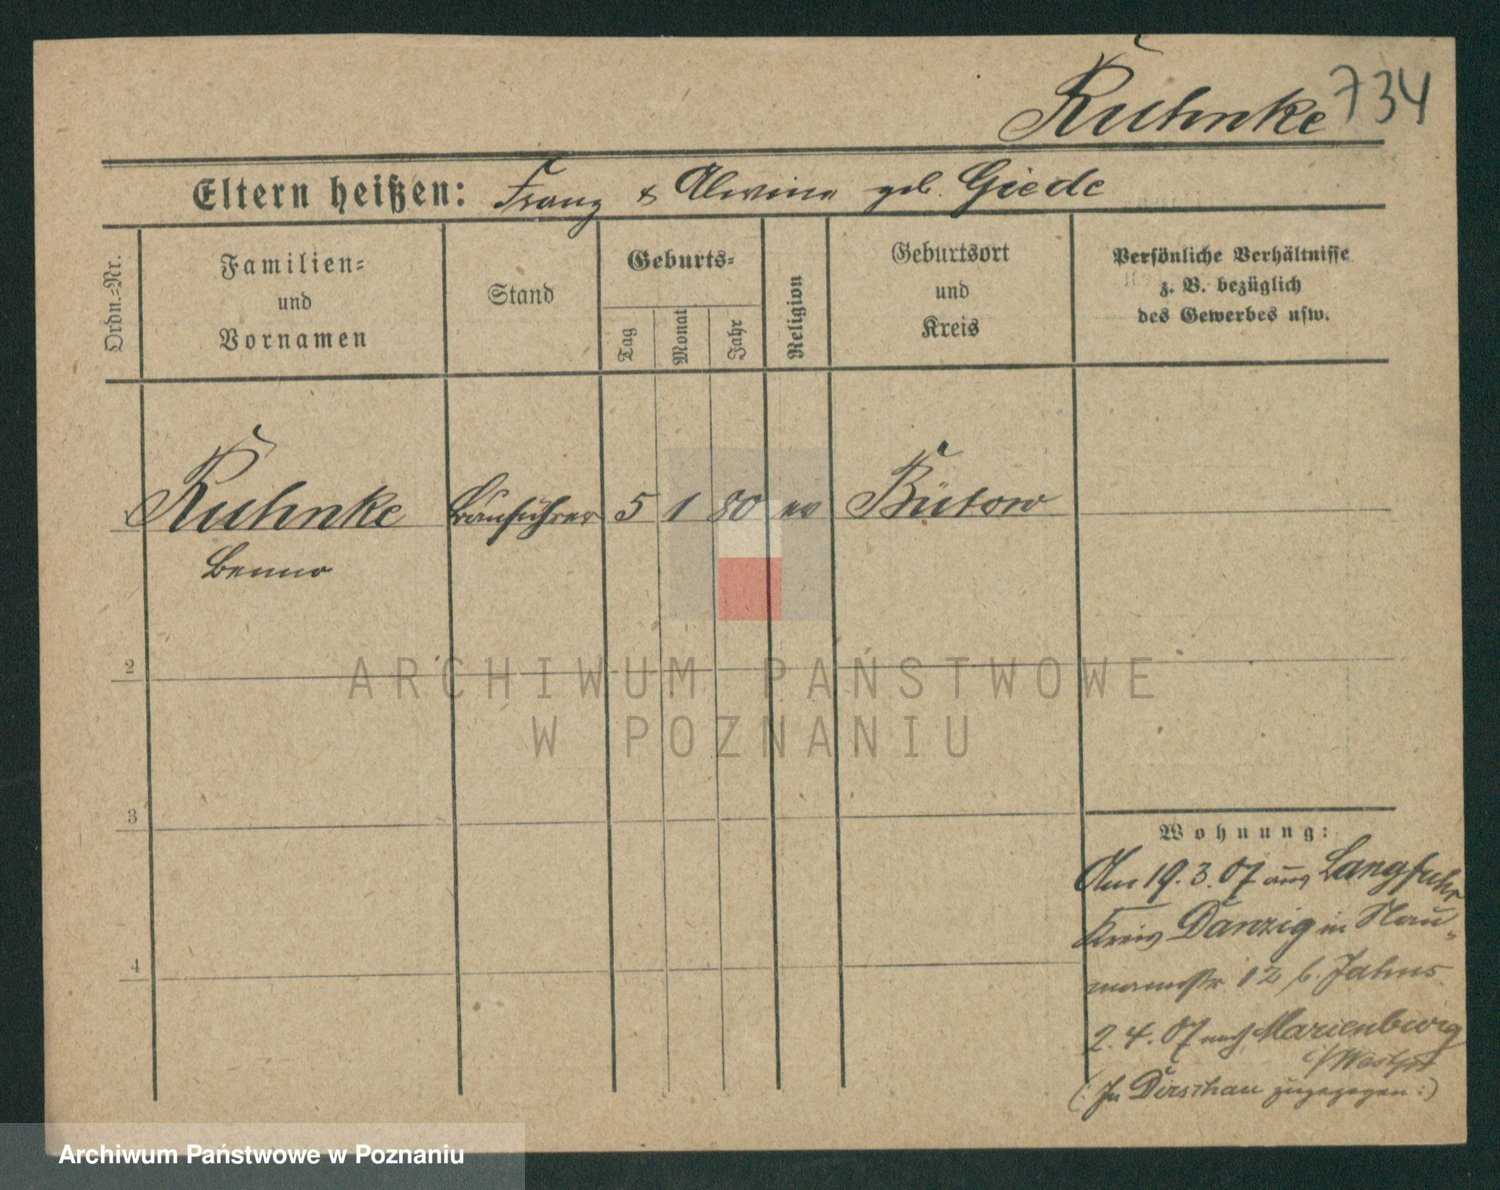 Kuhnke 734
Eltern heißen: Franz & Alwine geb. Giede
Ordn.=Nr.
Familien=
und
Vornamen
Stand
Geburts=
Tag
Monat
Jahr
Religion
Geburtsort
und
Kreis
Persönliche Verhältnisse
z. B. bezüglich
des Gewerbes usw.
Kuhnke Bauführer 5 1 80 ev Bütow
Benno
2
3
4
Wohnung:
Am 19.3.07 aus Langfuhr
Kreis Danzig in Nau=
mannstr. 12 b. Jahns
2.4.07 nach Marienburg
i/Westpr
(: In Dirschau zugezogen :)
ARCHIWUM PAŃSTWOWE
W POZNANIU
Archiwum Państwowe w Poznaniu